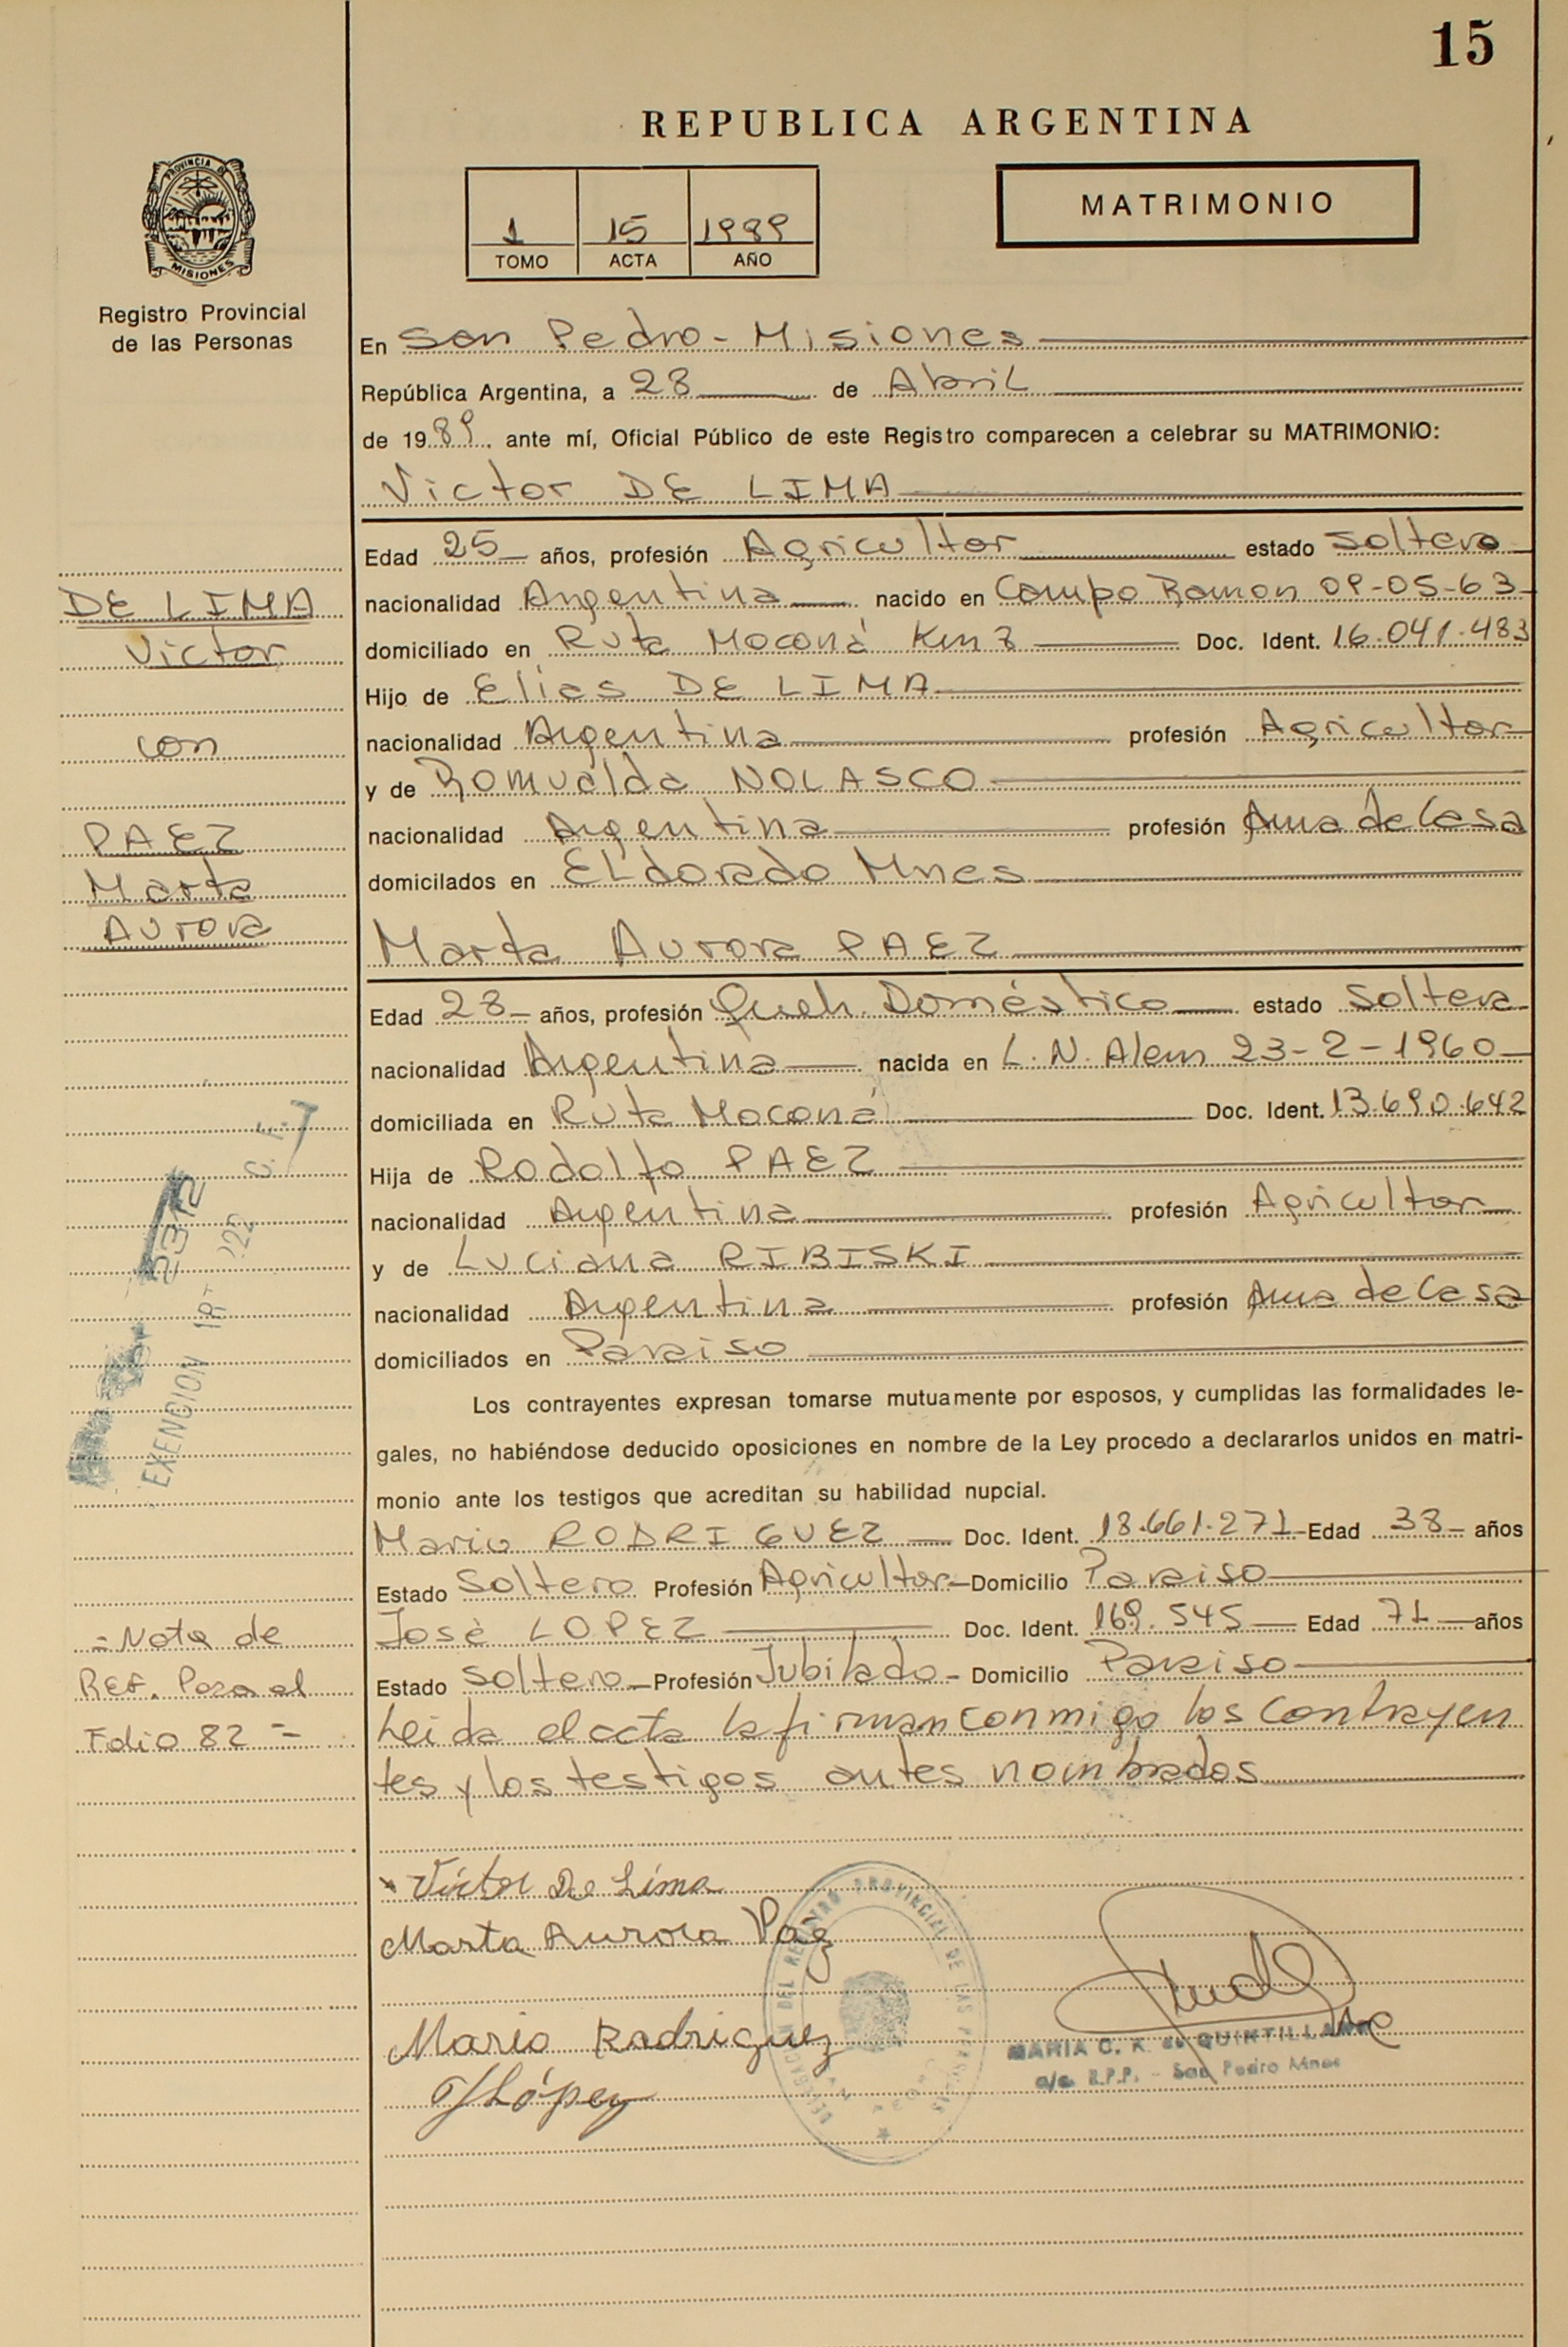 15
REPUBLICA ARGENTINA
PROVINCIA DE
MISIONES
Registro Provincial
de las Personas
1 15 1989
TOMO ACTA AÑO
MATRIMONIO
En San Pedro - Misiones
República Argentina, a 28 de Abril
de 1989. ante mí, Oficial Público de este Registro comparecen a celebrar su MATRIMONIO:
Victor DE LIMA
Edad 25 años, profesión Agricultor estado soltero
nacionalidad Argentina nacido en Campo Ramon 09-05-63
domiciliado en Ruta Moconá Km 8 Doc. Ident. 16.041.483
Hijo de Elias DE LIMA
nacionalidad Argentina profesión Agricultor
y de Romualda NOLASCO
nacionalidad Argentina profesión Ama de Casa
domicilados en ELdorado Mnes
Marta Aurora PAEZ
Edad 28 años, profesión Queh. Doméstico estado Soltera
nacionalidad Argentina nacida en L. N. Alem 23-2-1960
domiciliada en Ruta Moconá Doc. Ident. 13.690.642
Hija de Rodolfo PAEZ
nacionalidad Argentina profesión Agricultor
y de Luciana RIBISKI
nacionalidad Argentina profesión Ama de Casa
domiciliados en Paraiso
Los contrayentes expresan tomarse mutuamente por esposos, y cumplidas las formalidades le-
gales, no habiéndose deducido oposiciones en nombre de la Ley procedo a declararlos unidos en matri-
monio ante los testigos que acreditan su habilidad nupcial.
Mario RODRIGUEZ Doc. Ident. 18.661.271 Edad 38 años
Estado Soltero Profesión Agricultor Domicilio Paraiso
José LOPEZ Doc. Ident. 169.545 Edad 71 años
Estado Soltero Profesión Jubilado - Domicilio Paraiso
Leida el acta la firman conmigo los contrayen
tes y los testigos antes nombrados
Victor De Lima
Marta Aurora Paez
Mario Rodriguez
J López
DELEGACION DEL REGISTRO PROVINCIAL DE LAS PERSONAS
MARIA C. K. de QUINTILLANA
a/c. R.P.P. - San Pedro Mnes
DE LIMA
Victor
con
PAEZ
Marta
Aurora
EXENCION
= Nota de
REF. Pasa al
Folio 82 =